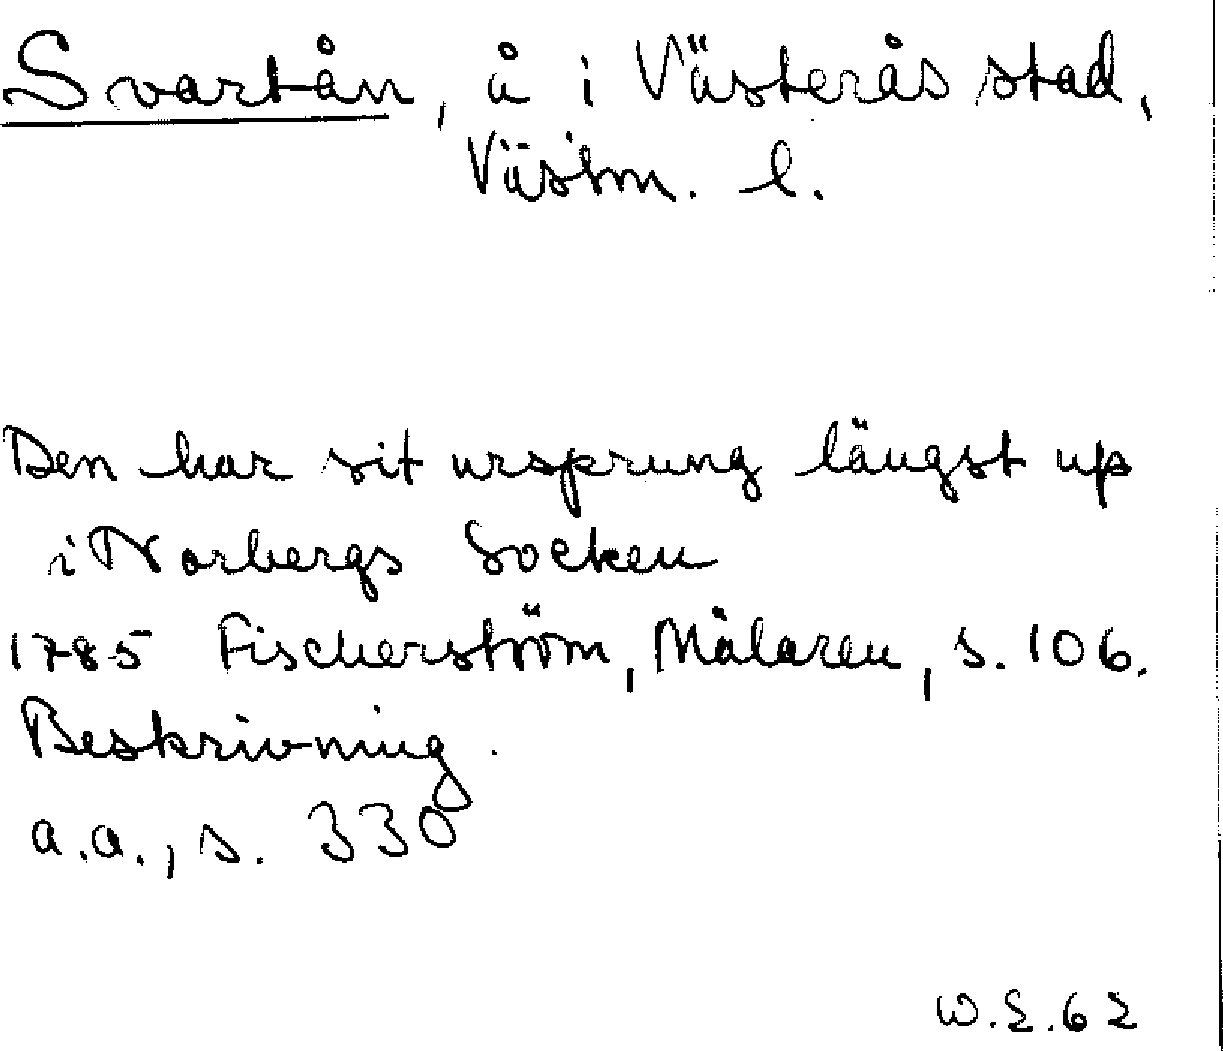 Svartån, å i Västerås stad,
Västm. l.
Den har sit ursprung längst up
i Norbergs Socken
1785 Fischerström, Mälaren, s. 106.
Beskrivning.
a.a., s. 330
W.E.62